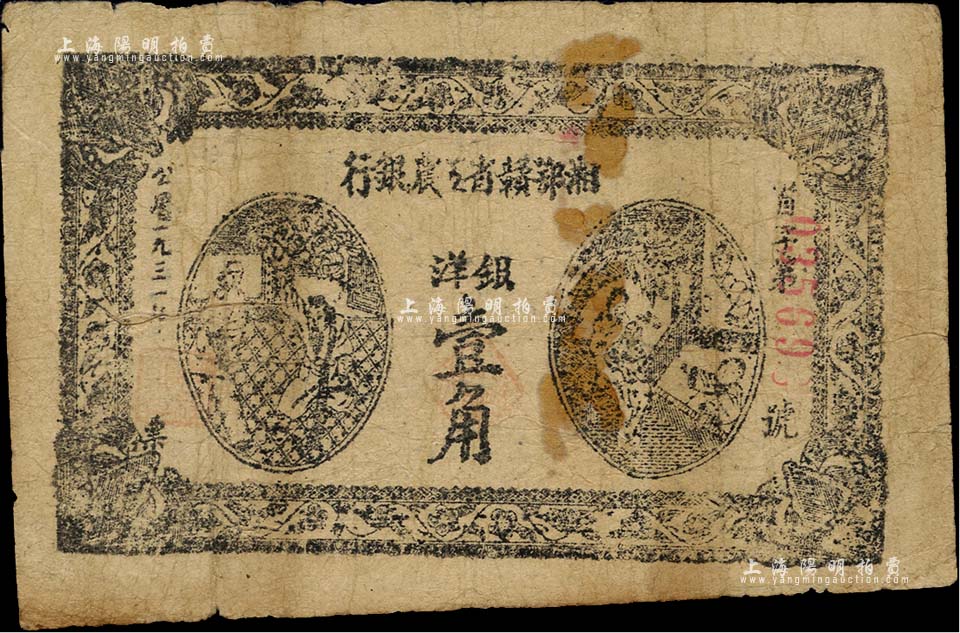 上海陽明拍賣
www.yangmingauction.com
湘鄂贛省工農銀行
銀洋
壹角
首字第
號
公曆一九三一年
票
上海陽明拍賣
www.yangmingauction.com
上海陽明拍賣
www.yangmingauction.com